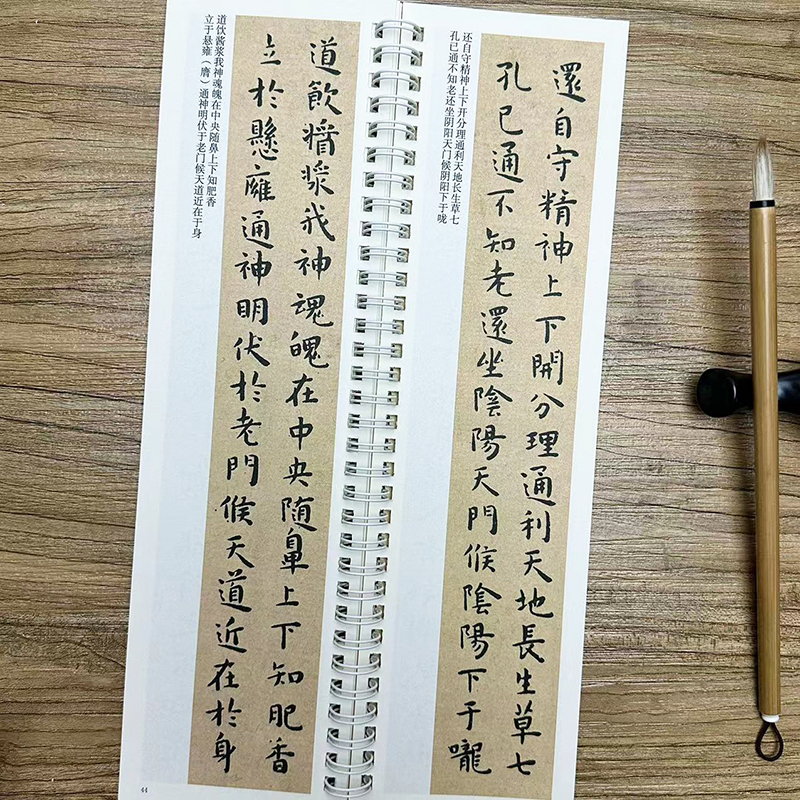 還自守精神上下開分理通利天地長生草七
孔已通不知老還坐陰陽天門候陰陽下于嚨
还自守精神上下开分理通利天地长生草七
孔已通不知老还坐阴阳天门候阴阳下于咙
道飲醬漿我神魂魄在中央随鼻上下知肥香
立於懸廱通神明伏於老門候天道近在於身
道饮酱浆我神魂魄在中央随鼻上下知肥香
立于悬雍（膺）通神明伏于老门候天道近在于身
44